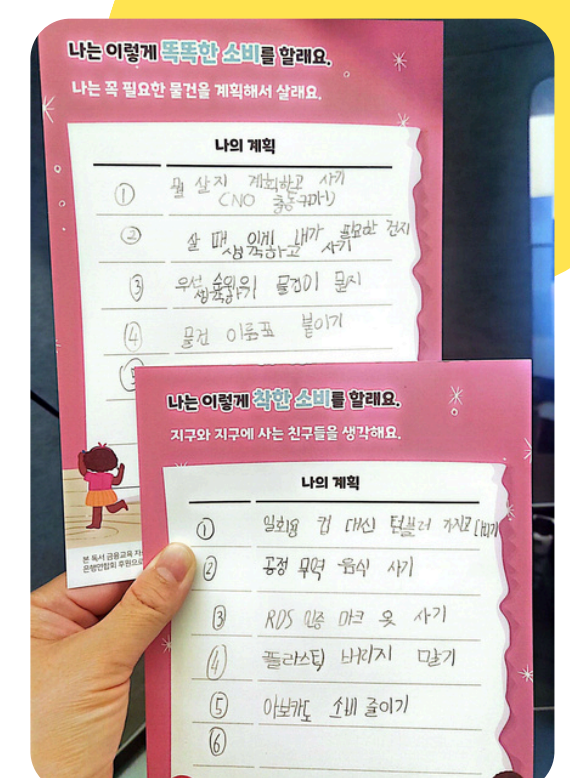 나는 이렇게 똑똑한 소비를 할래요.
나는 꼭 필요한 물건을 계획해서 살래요.
나의 계획
① 뭘 살지 계획하고 사기
(NO 충동구매)
② 살 때 이게 내가 필요한 건지
생각하고 사기
③ 우선 순위의 물건이 뭔지
생각하기
④ 물건 이름표 붙이기
본 독서 금융교육
은행연합회 후원으로
나는 이렇게 착한 소비를 할래요.
지구와 지구에 사는 친구들을 생각해요.
나의 계획
① 일회용 컵 대신 텀블러 가지고 다니기
② 공정 무역 음식 사기
③ RDS 인증 마크 옷 사기
④ 플라스틱 버리지 말기
⑤ 아보카도 소비 줄이기
⑥